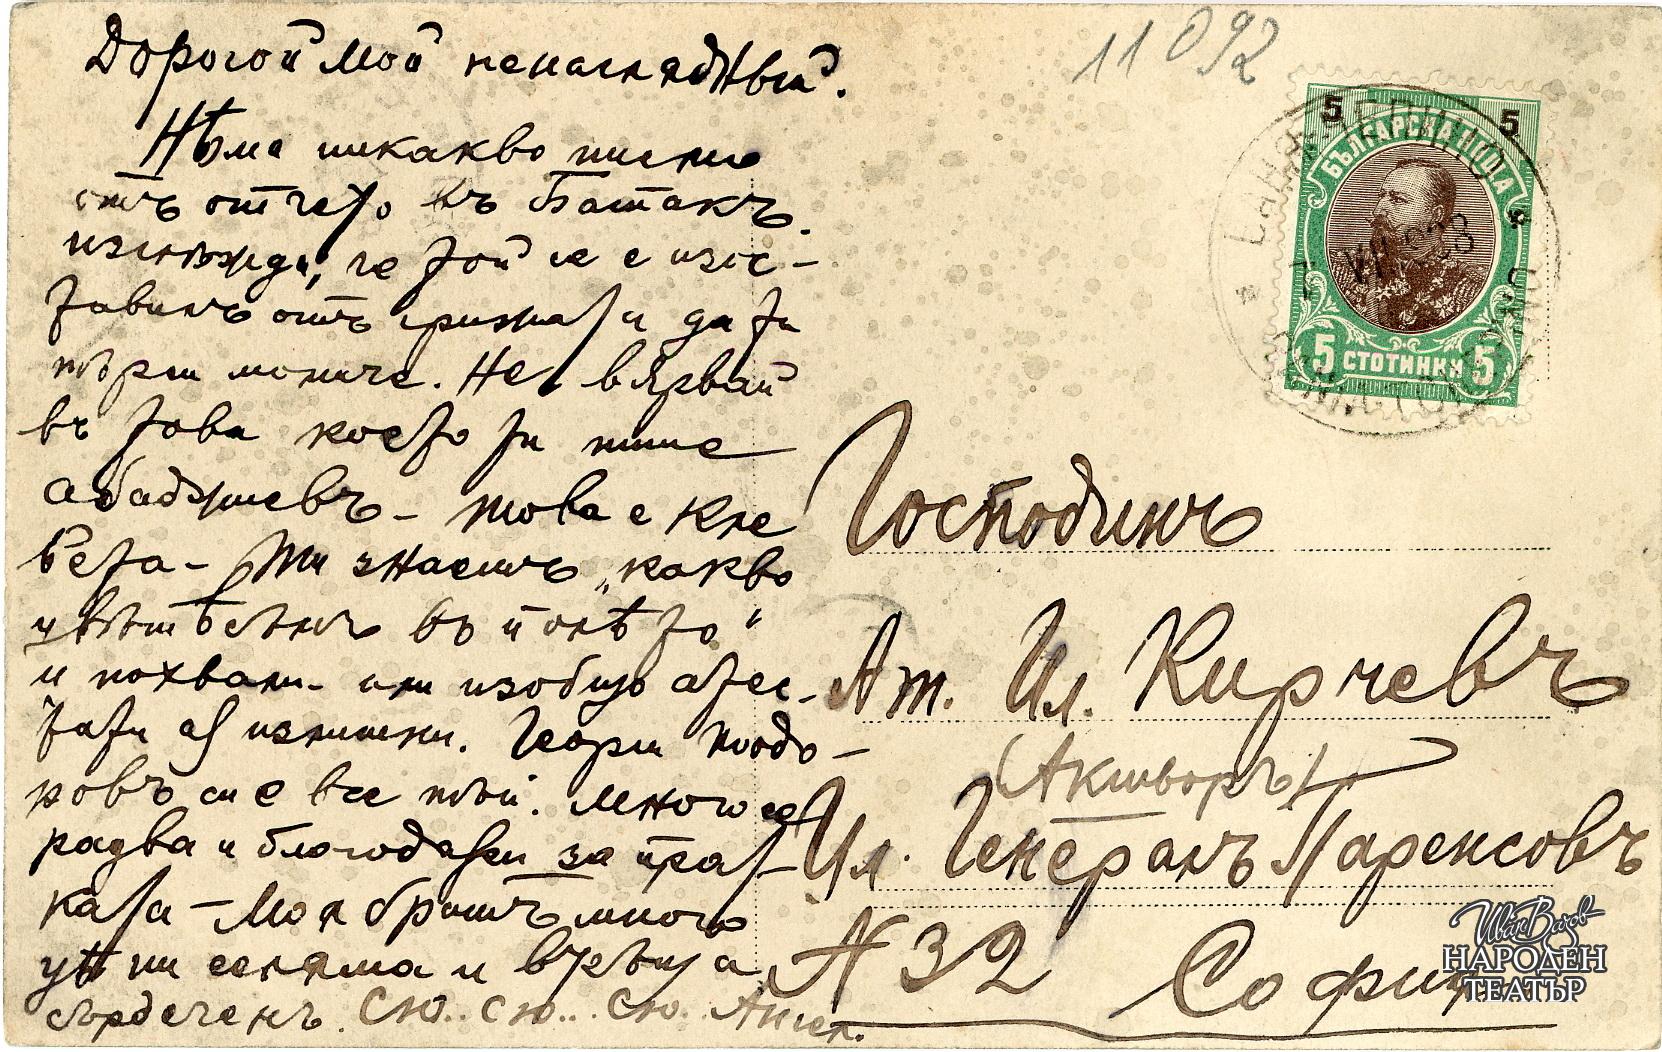 Дорогой мой ненаглядный.
Нѣма никакво писмо
отъ отчето въ Батакъ.
изглѣжда, че той се е изос-
тавилъ отъ грижата си да ти
търси момиче. Не вярвай
въ това което ти пише
Абаджиевъ - това е кле
вета - Ти знаешъ „какво
въ полѣто“
и похвали или изобщо атес-
тати излишни. Георги Тодо-
ровъ си е все тъй. Много се
радва и благодари за
Моя братъ много
и
сърдеченъ. Сю.. сю... сю.. Ангел.
11092
5 5
БЪЛГАРСКА ПОЩА
5 СТОТИНКИ 5
Господинъ
Ат. Ил. Кирчевъ
(Актьоръ)
Ул. Генералъ Паренсовъ
N 32 София
Иван Вазов
НАРОДЕН
ТЕАТЪР